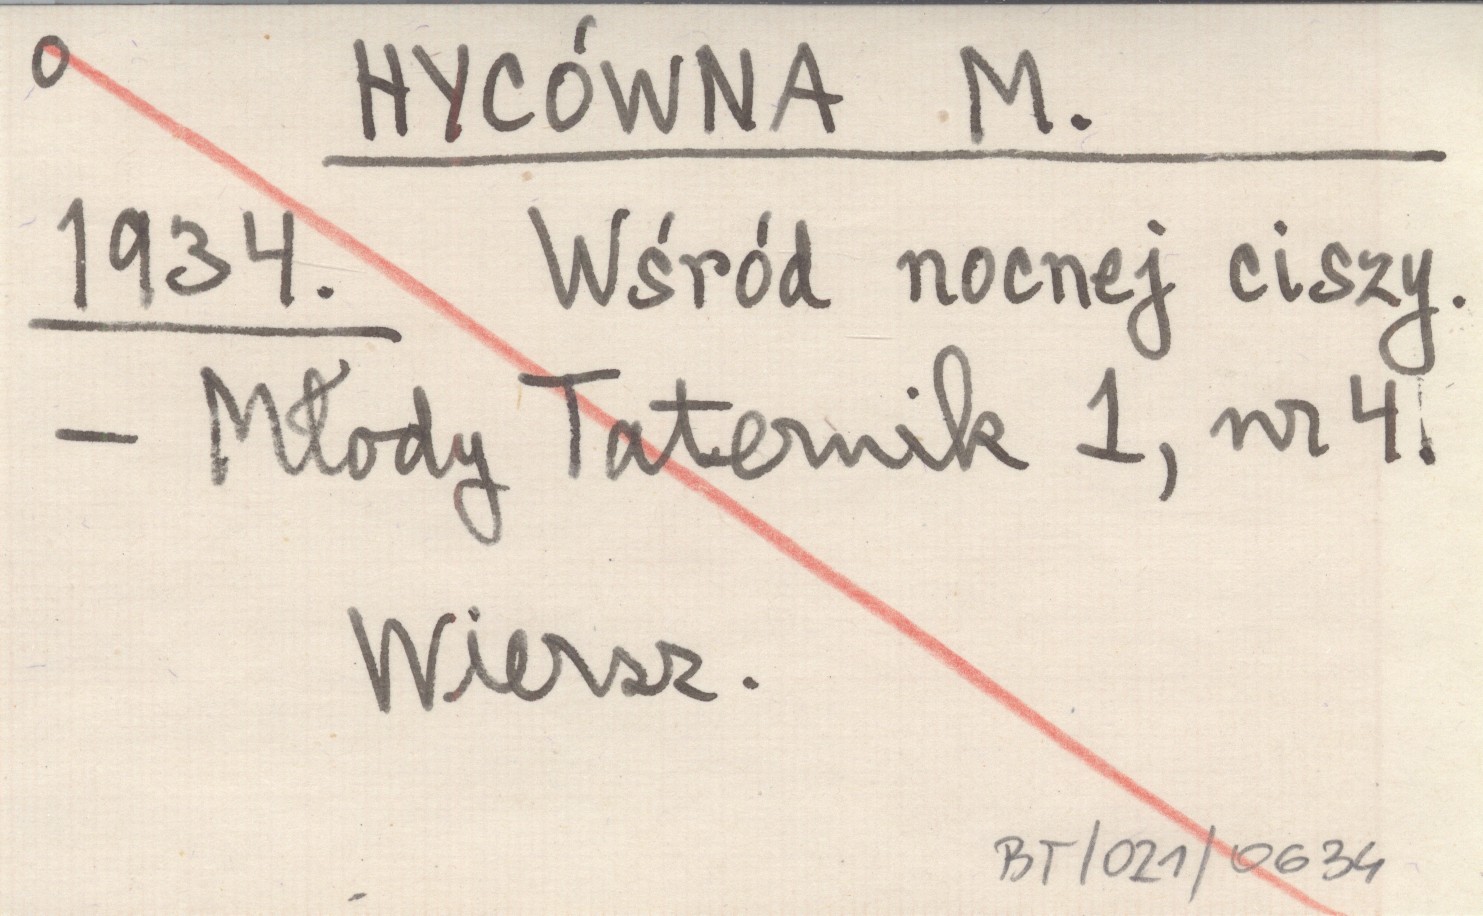 O HYCÓWNA M.
1934. Wśród nocnej ciszy.
– Młody Taternik 1, nr 4.
Wiersz.
BT/021/0634